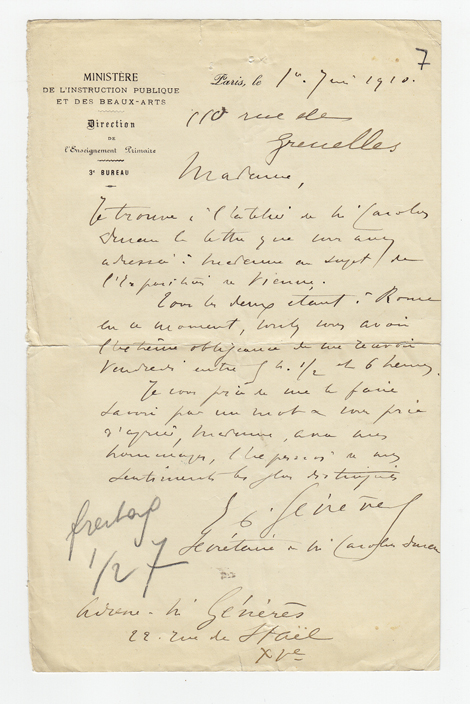 7
MINISTÈRE
DE L'INSTRUCTION PUBLIQUE
ET DES BEAUX-ARTS
Direction
DE
l'Enseignement Primaire
3e BUREAU
Paris, le 1er 1910.
110 rue de
Grenelles
Madame,
Je trouve à l'atelier de M. Carolus
Duran la lettre que vous avez
adressée à Madame au sujet de
l'Exposition de Vienne.
Tous les deux étant à Rome
en ce moment, voulez vous avoir
l'extrême obligeance de me recevoir
Vendredi entre 5 h. 1/2 et 6 heures.
Je vous prie de me le faire
savoir par un mot et vous prie
d'agréer, Madame, avec mes
hommages, l'expression de mes
sentiments les plus distingués
Secrétaire de M. Carolus Duran
Freitag
1/2 7
Adresse - M. Génières
22 rue de Staël
XVe